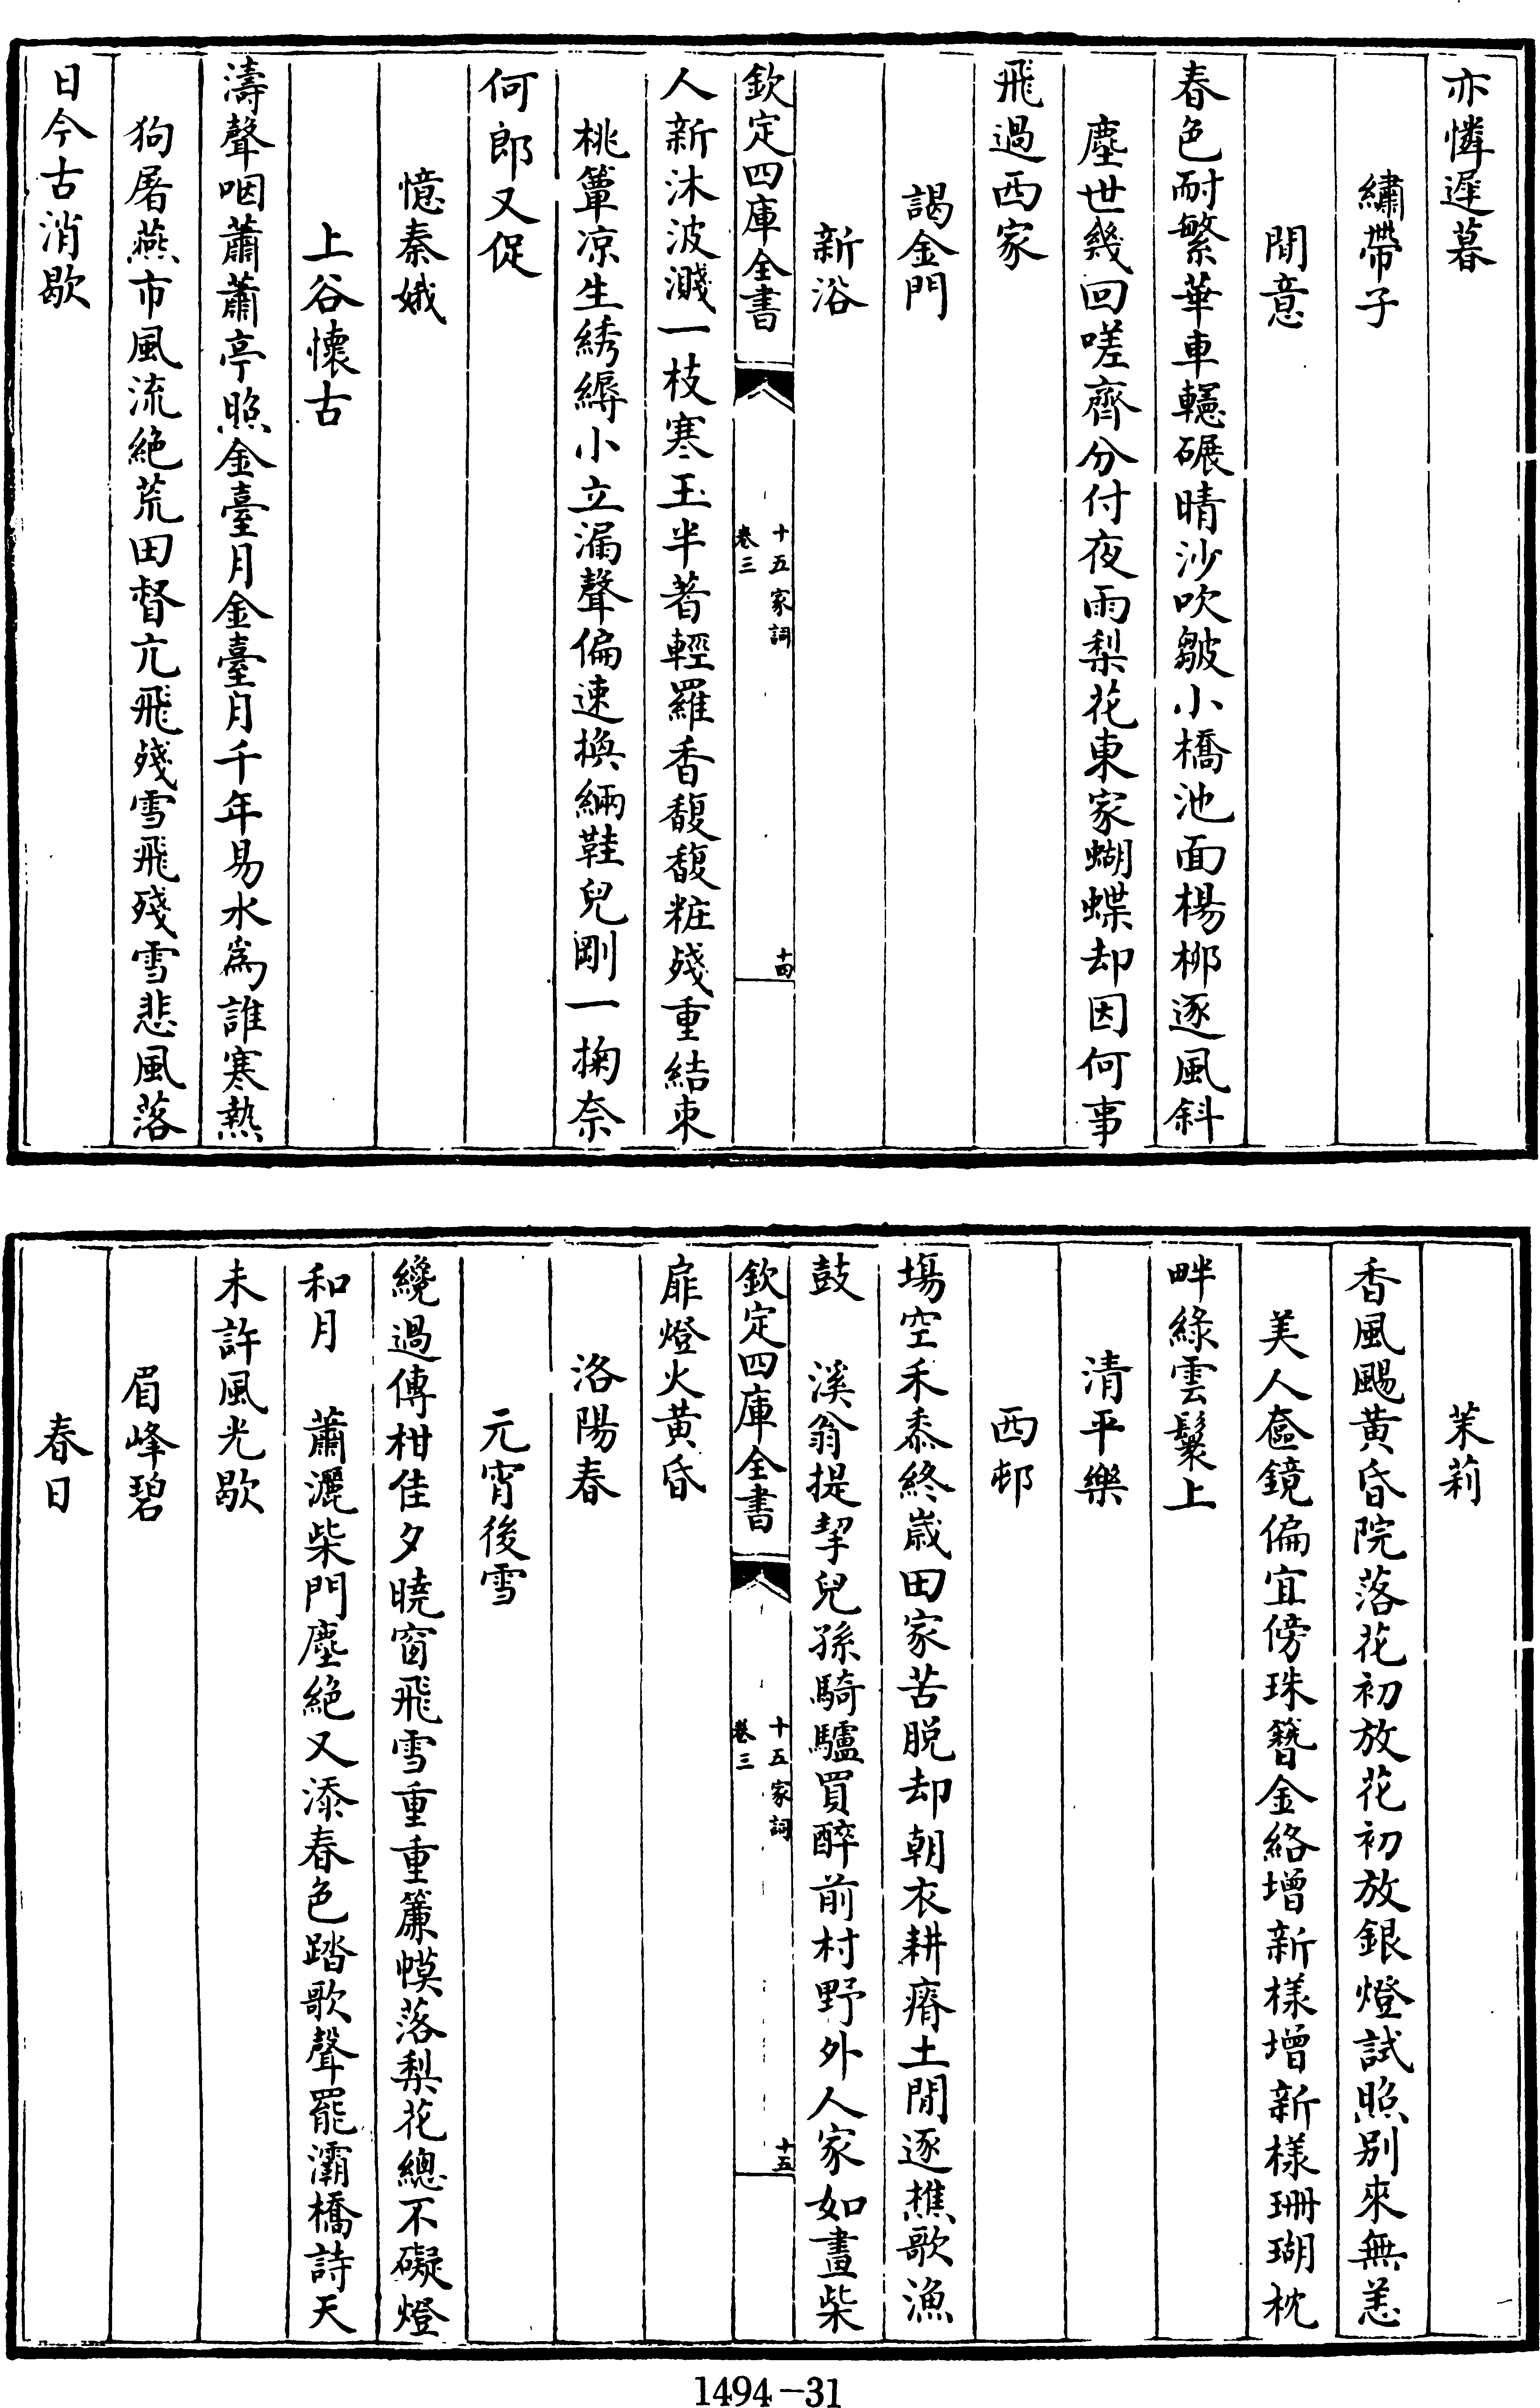 亦憐遲暮
繡帶子
閒意
春色耐繁華車轣碾晴沙吹皺小橋池面楊柳逐風斜
塵世幾回嗟齊分付夜雨梨花東家蝴蝶却因何事
飛過西家
謁金門
新浴
欽定四庫全書
十五家詞
卷三
十四
人新沐波濺一枝寒玉半著輕羅香馥馥粧殘重結束
桃簟凉生綉縟小立漏聲偏速換緉鞋兒剛一掬奈
何郎又促
憶秦娥
上谷懷古
濤聲咽蕭蕭亭照金臺月金臺月千年易水為誰寒熱
狗屠燕市風流絶荒田督亢飛殘雪飛殘雪悲風落
日今古消歇
茉莉
香風颺黄昏院落花初放花初放銀燈試照别來無恙
美人奩鏡偏宜傍珠簪金絡增新樣增新樣珊瑚枕
畔綠雲鬟上
清平樂
西邨
塲空禾黍終歲田家苦脱却朝衣耕瘠土閒逐樵歌漁
鼓　溪翁提挈兒孫騎驢買醉前村野外人家如畫柴
欽定四庫全書
十五家詞
卷三
十五
扉燈火黄昏
洛陽春
元宵後雪
纔過傳柑佳夕曉窗飛雪重重簾幙落梨花總不礙燈
和月　蕭灑柴門塵絶又添春色踏歌聲罷灞橋詩天
未許風光歇
眉峰碧
春日
1494-31